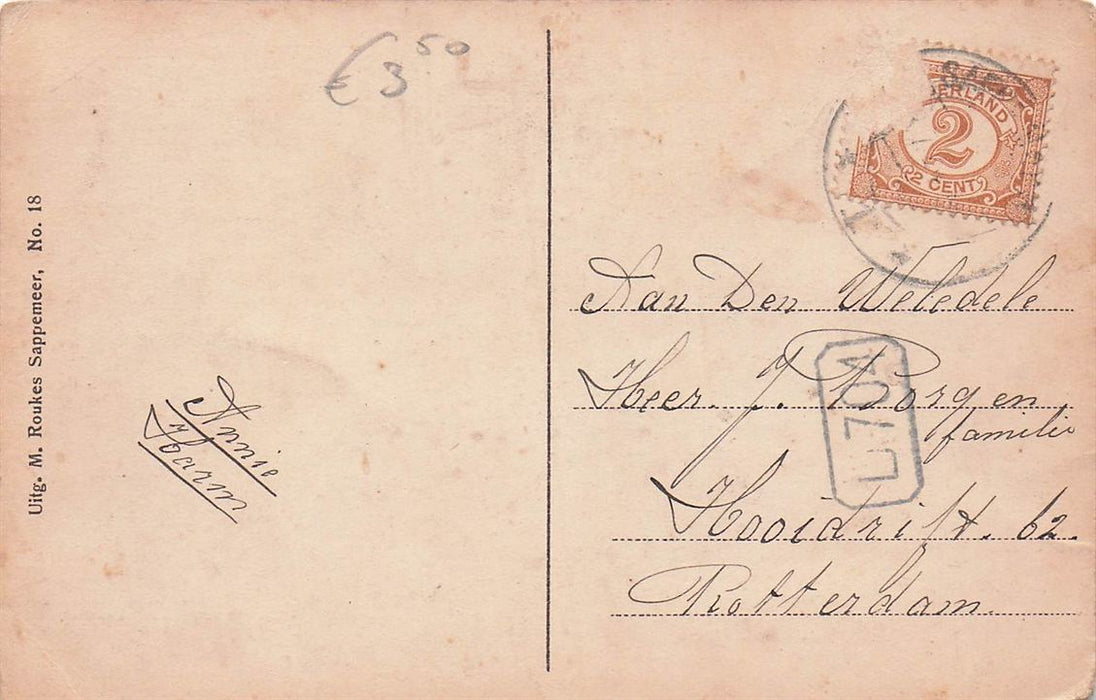 € 3 50
Uitg. M. Roukes Sappemeer, No. 18
Annie
Harm
ERLAND
2
2 CENT
Aan Den Weledele
Heer. J. Borg en
familie
L 704
Hooidrift. 62.
Rotterdam.